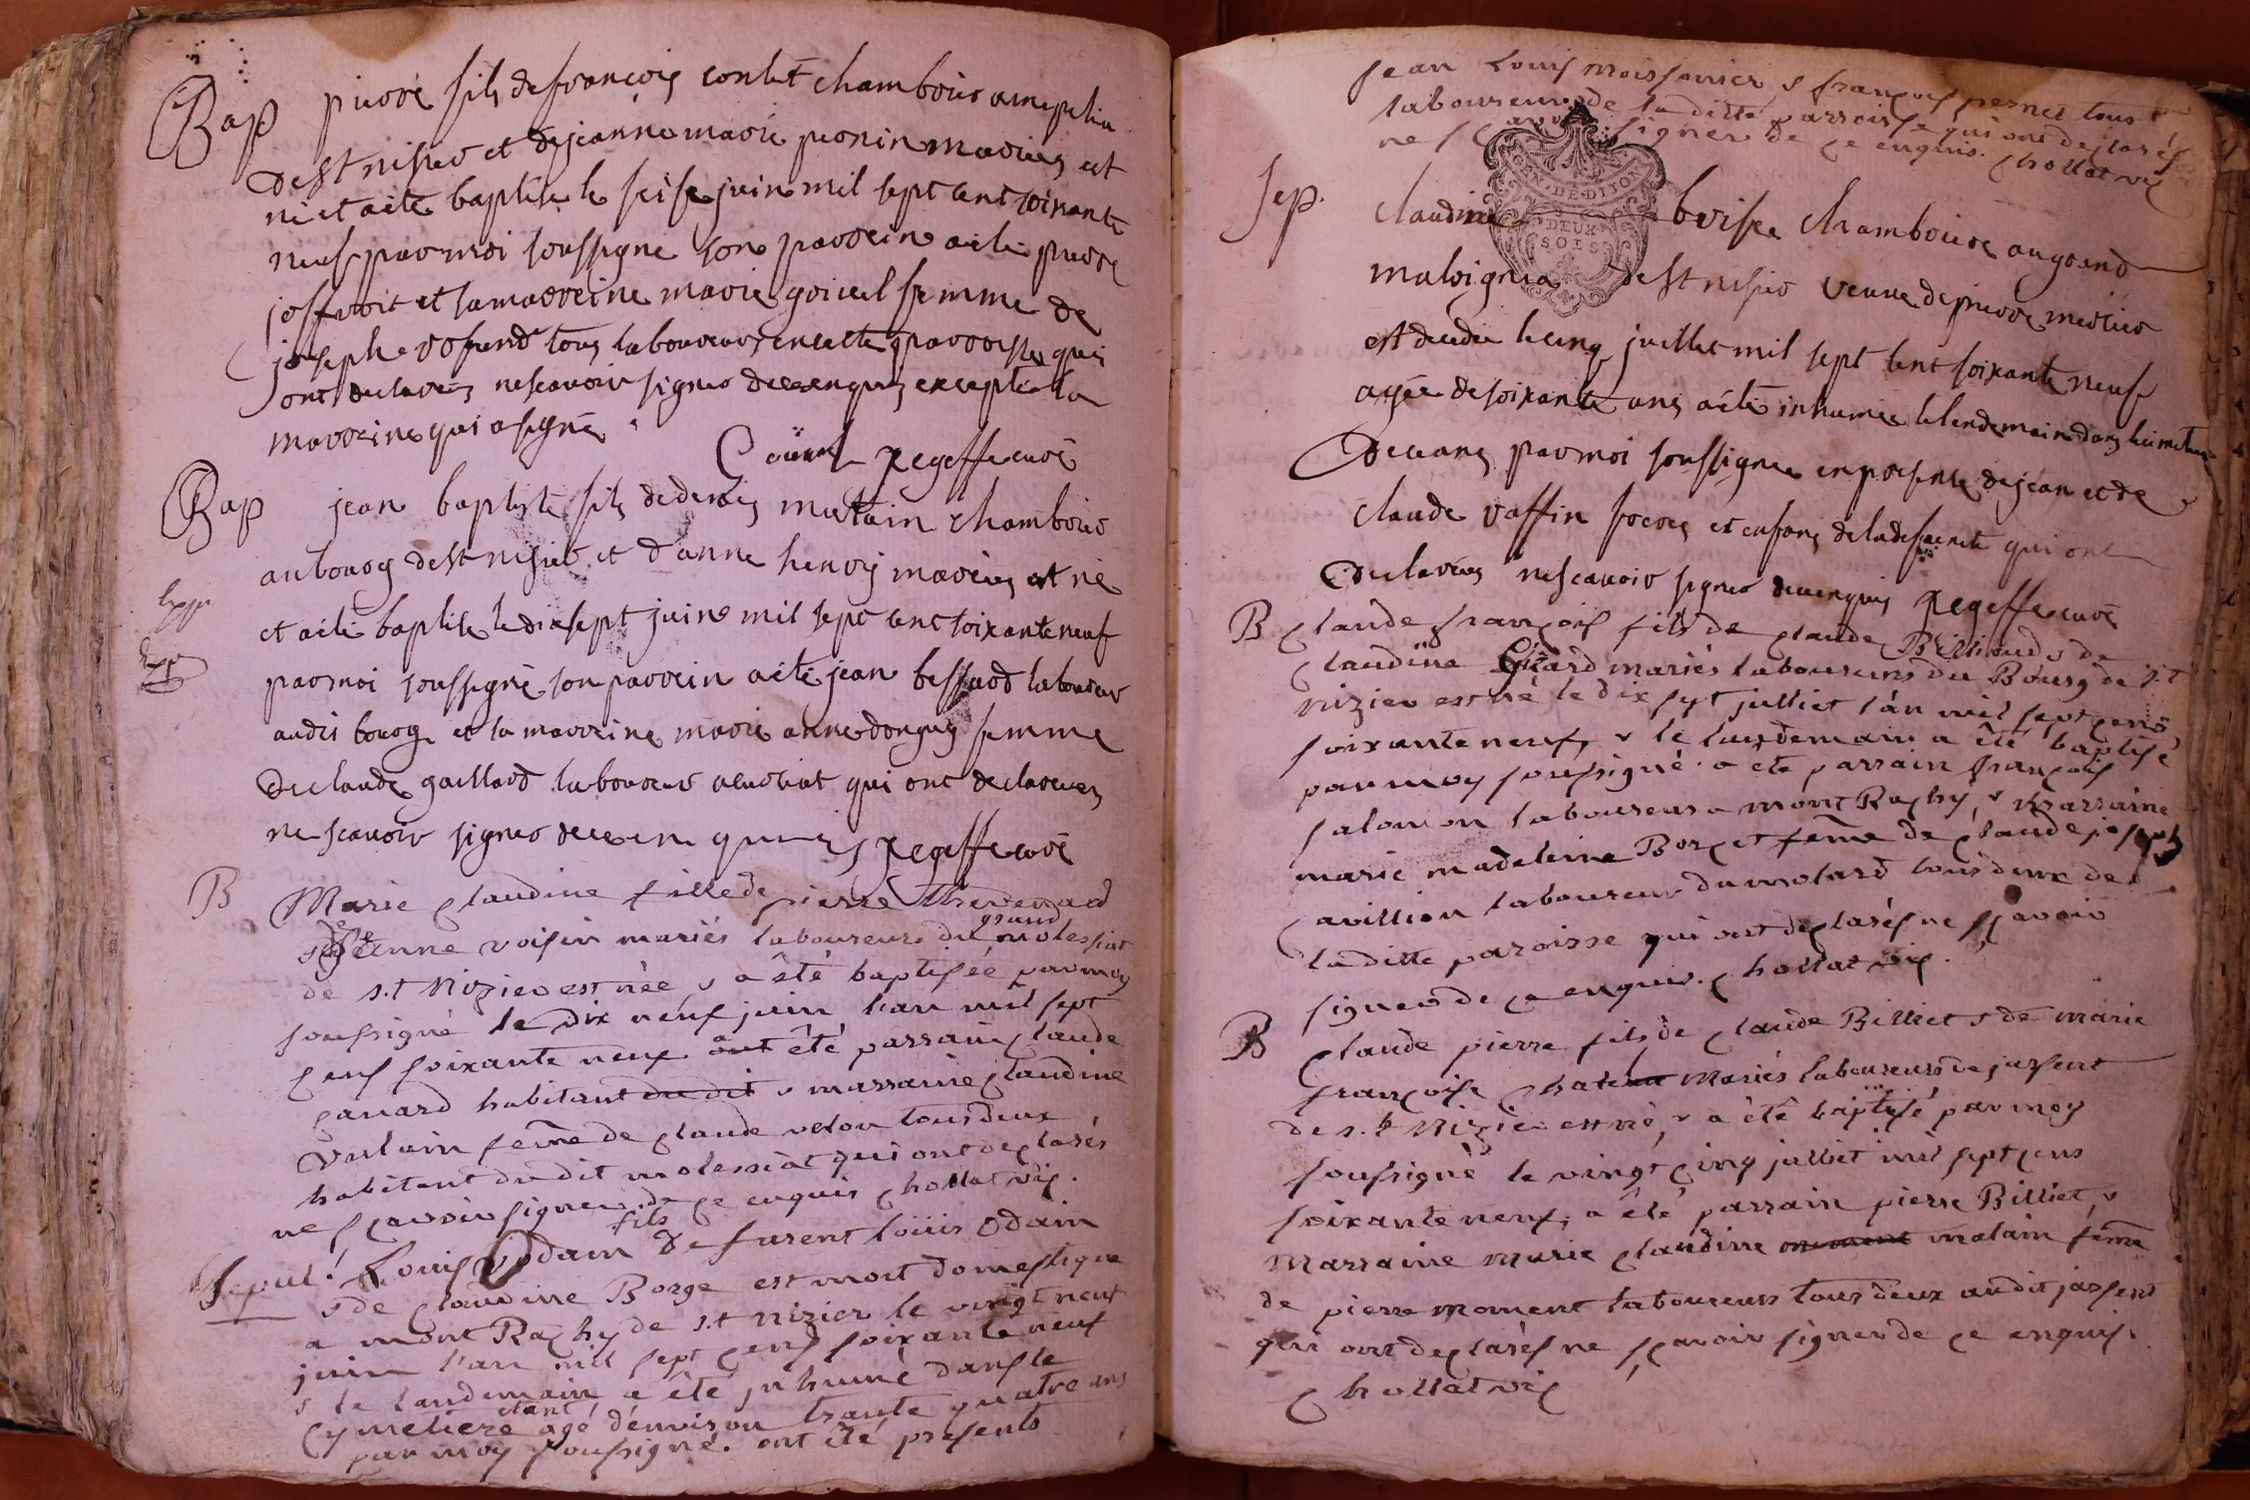 Bap pierre fils de françois contet chambrier au
de st nisier et de jeanne marie perrin mariés est
né et a été baptisé le seise juin mil sept cent soixante
neuf par moi soussigné son parrein a été pierre
joffroit et sa marreine marie femme de
joseph tous laboureurs en cette parroisse qui
ont declarés ne scavoir signer de ce enquis excepté la
marreine qui a signé.
curé
Bap jean baptiste fils de denis chambrier
au bourg de st nisier et d'anne henry mariés est né
et a été baptisé le dix sept juin mil sept cent soixante neuf
par moi soussigné son parrein a été jean bessard laboureur
audit bourg et la marreine marie anne donguy femme
de claude gaillard laboureur qui ont declarés
ne scavoir signer de ce en quis curé
B Marie claudine fille de pierre thevenard
& etienne voisin mariés laboureurs du grand molessiat
de s.t Nizier est née & a été baptisée par moy
sousigné le dix neuf juin l'an mil sept
cens soixante neuf a été parrain claude
canard habitant du dit & marraine claudine
vulain feme de claude velon tous deux
habitant du dit molessiat qui ont declarés
ne sçavoir signer de ce enquis chollat vic.
Sepul. Louis odain fils de furent loüis odain
& de claudine Borge est mort domestique
a mont Rachy de s.t nizier le vingt neuf
juin l'an mil sept cens soixante neuf
& le landemain a été inhumé dans le
cymetiere etant agé d'environ trante quatre ans
par moy sousigné. ont été presents
jean Louis moissonier & françois pernet tous
laboureurs de la ditte parroisse qui ont declarés
ne sçavoir signer de ce enquis. chollat vic
Sep. claudine brisse chambriere au grand
GEN. DE DIJON
DEUX
SOLS
de st nisier veuve de pierre
est decedée le cinq juillet mil sept cent soixante neuf
agée de soixante ans a été inhumée le lendemain dans le cimetiere
de ceans par moi soussigné en presence de jean et de
claude vaffin freres et enfans de la defuncte qui ont
declarés ne scavoir signer de ce enquis curé
B claude françois fils de claude Billioud & de
claudine mariés laboureurs du Bourg de s.t
nizier est né le dix sept julliet l'an mil sept cens
soixante neuf, & le landemain a été baptisé
par moy sousigné. a été parrain françois
salomon laboureur a mont Rachy, & marraine
marie madeleine Borget feme de claude joseph
avillion laboureur du molard tous deux de
la ditte paroisse qui ont declarés ne sçavoir
signer de ce enquis. chollat vic.
B claude pierre fils de claude Billiet & de marie
françoise mariés laboureurs de jassent
de s.t Nizier est né, & a été baptisé par moy
sousigné le vingt cinq julliet mil sept cens
soixante neuf; a été parrain pierre Billiet, &
marraine marie claudine moment malain feme
de pierre moment laboureurs tous deux audit jassent
qui ont declarés ne sçavoir signer de ce enquis.
chollat vic